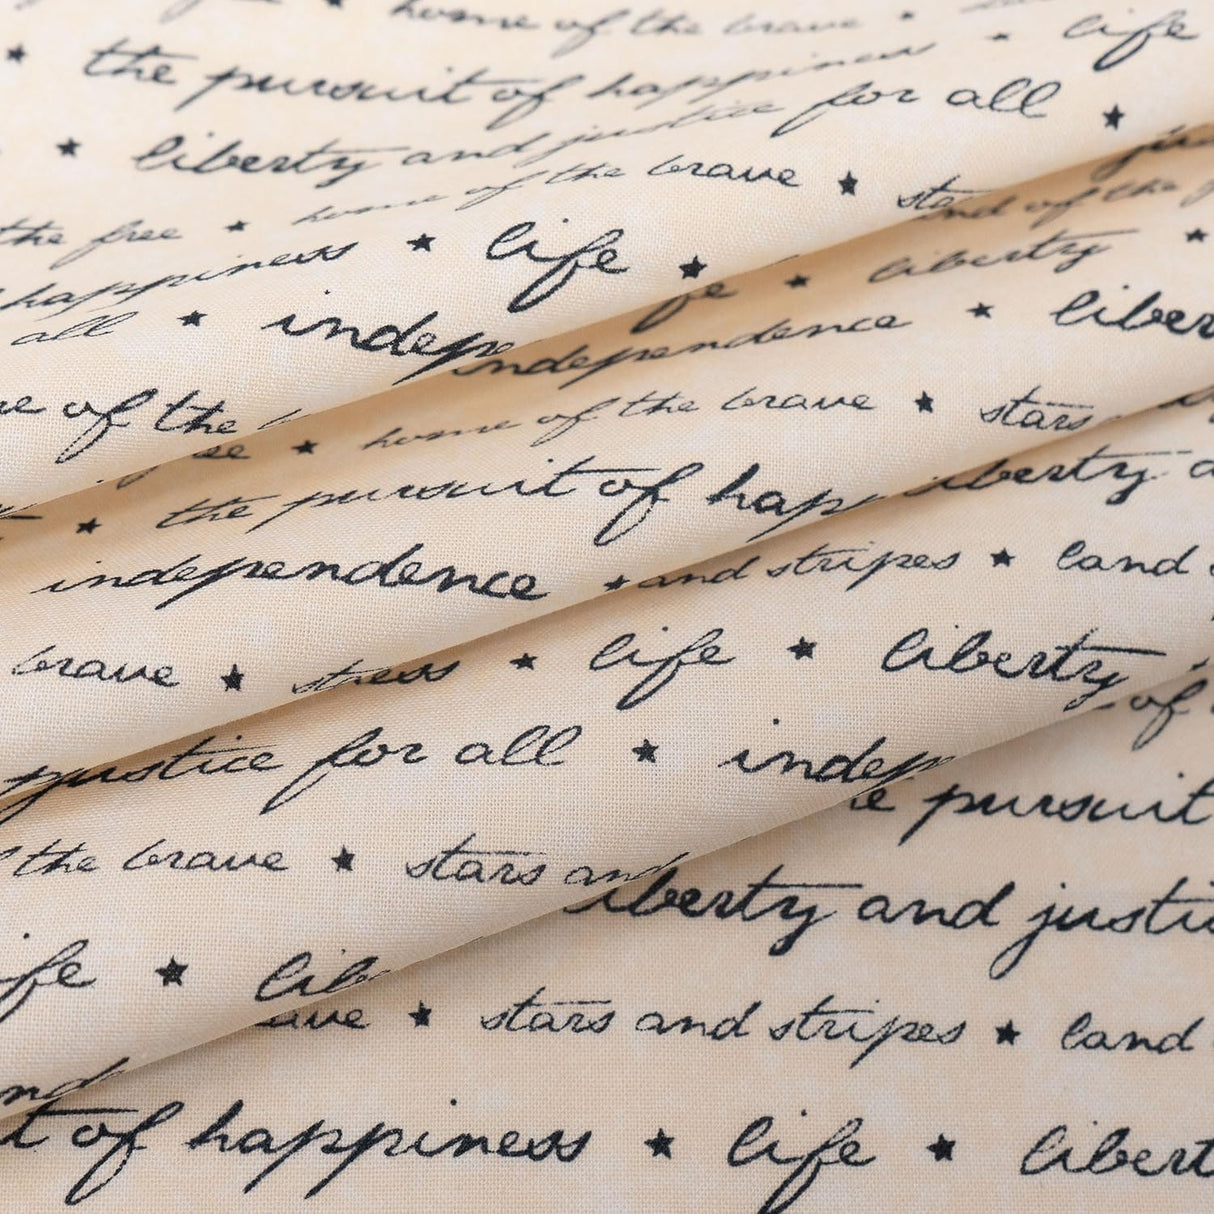 home of the brave ★
★ the pursuit of happiness ★ life
★ liberty and justice for all ★
the free ★ home of the brave ★
happiness ★ life ★
all ★ indepe
of the
land of the
★ liberty ★
★ independence ★ liber
★ home of the brave ★ stars
★ the pursuit of hap
liberty
independence ★ and stripes ★ land
brave ★ ★ life ★ liberty
of
justice for all ★ indep
pursuit
the brave ★ stars an
liberty and justic
fe ★ lib
ave ★ stars and stripes ★ land
t of happiness ★ life ★ libert